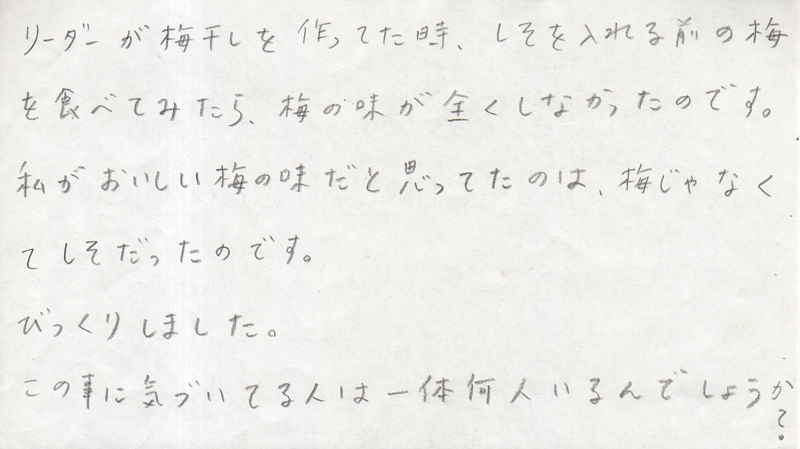 リーダーが梅干しを作ってた時、しそを入れる前の梅
を食べてみたら、梅の味が全くしなかったのです。
私がおいしい梅の味だと思ってたのは、梅じゃなく
てしそだったのです。
びっくりしました。
この事に気づいてる人は一体何人いるんでしょうか?